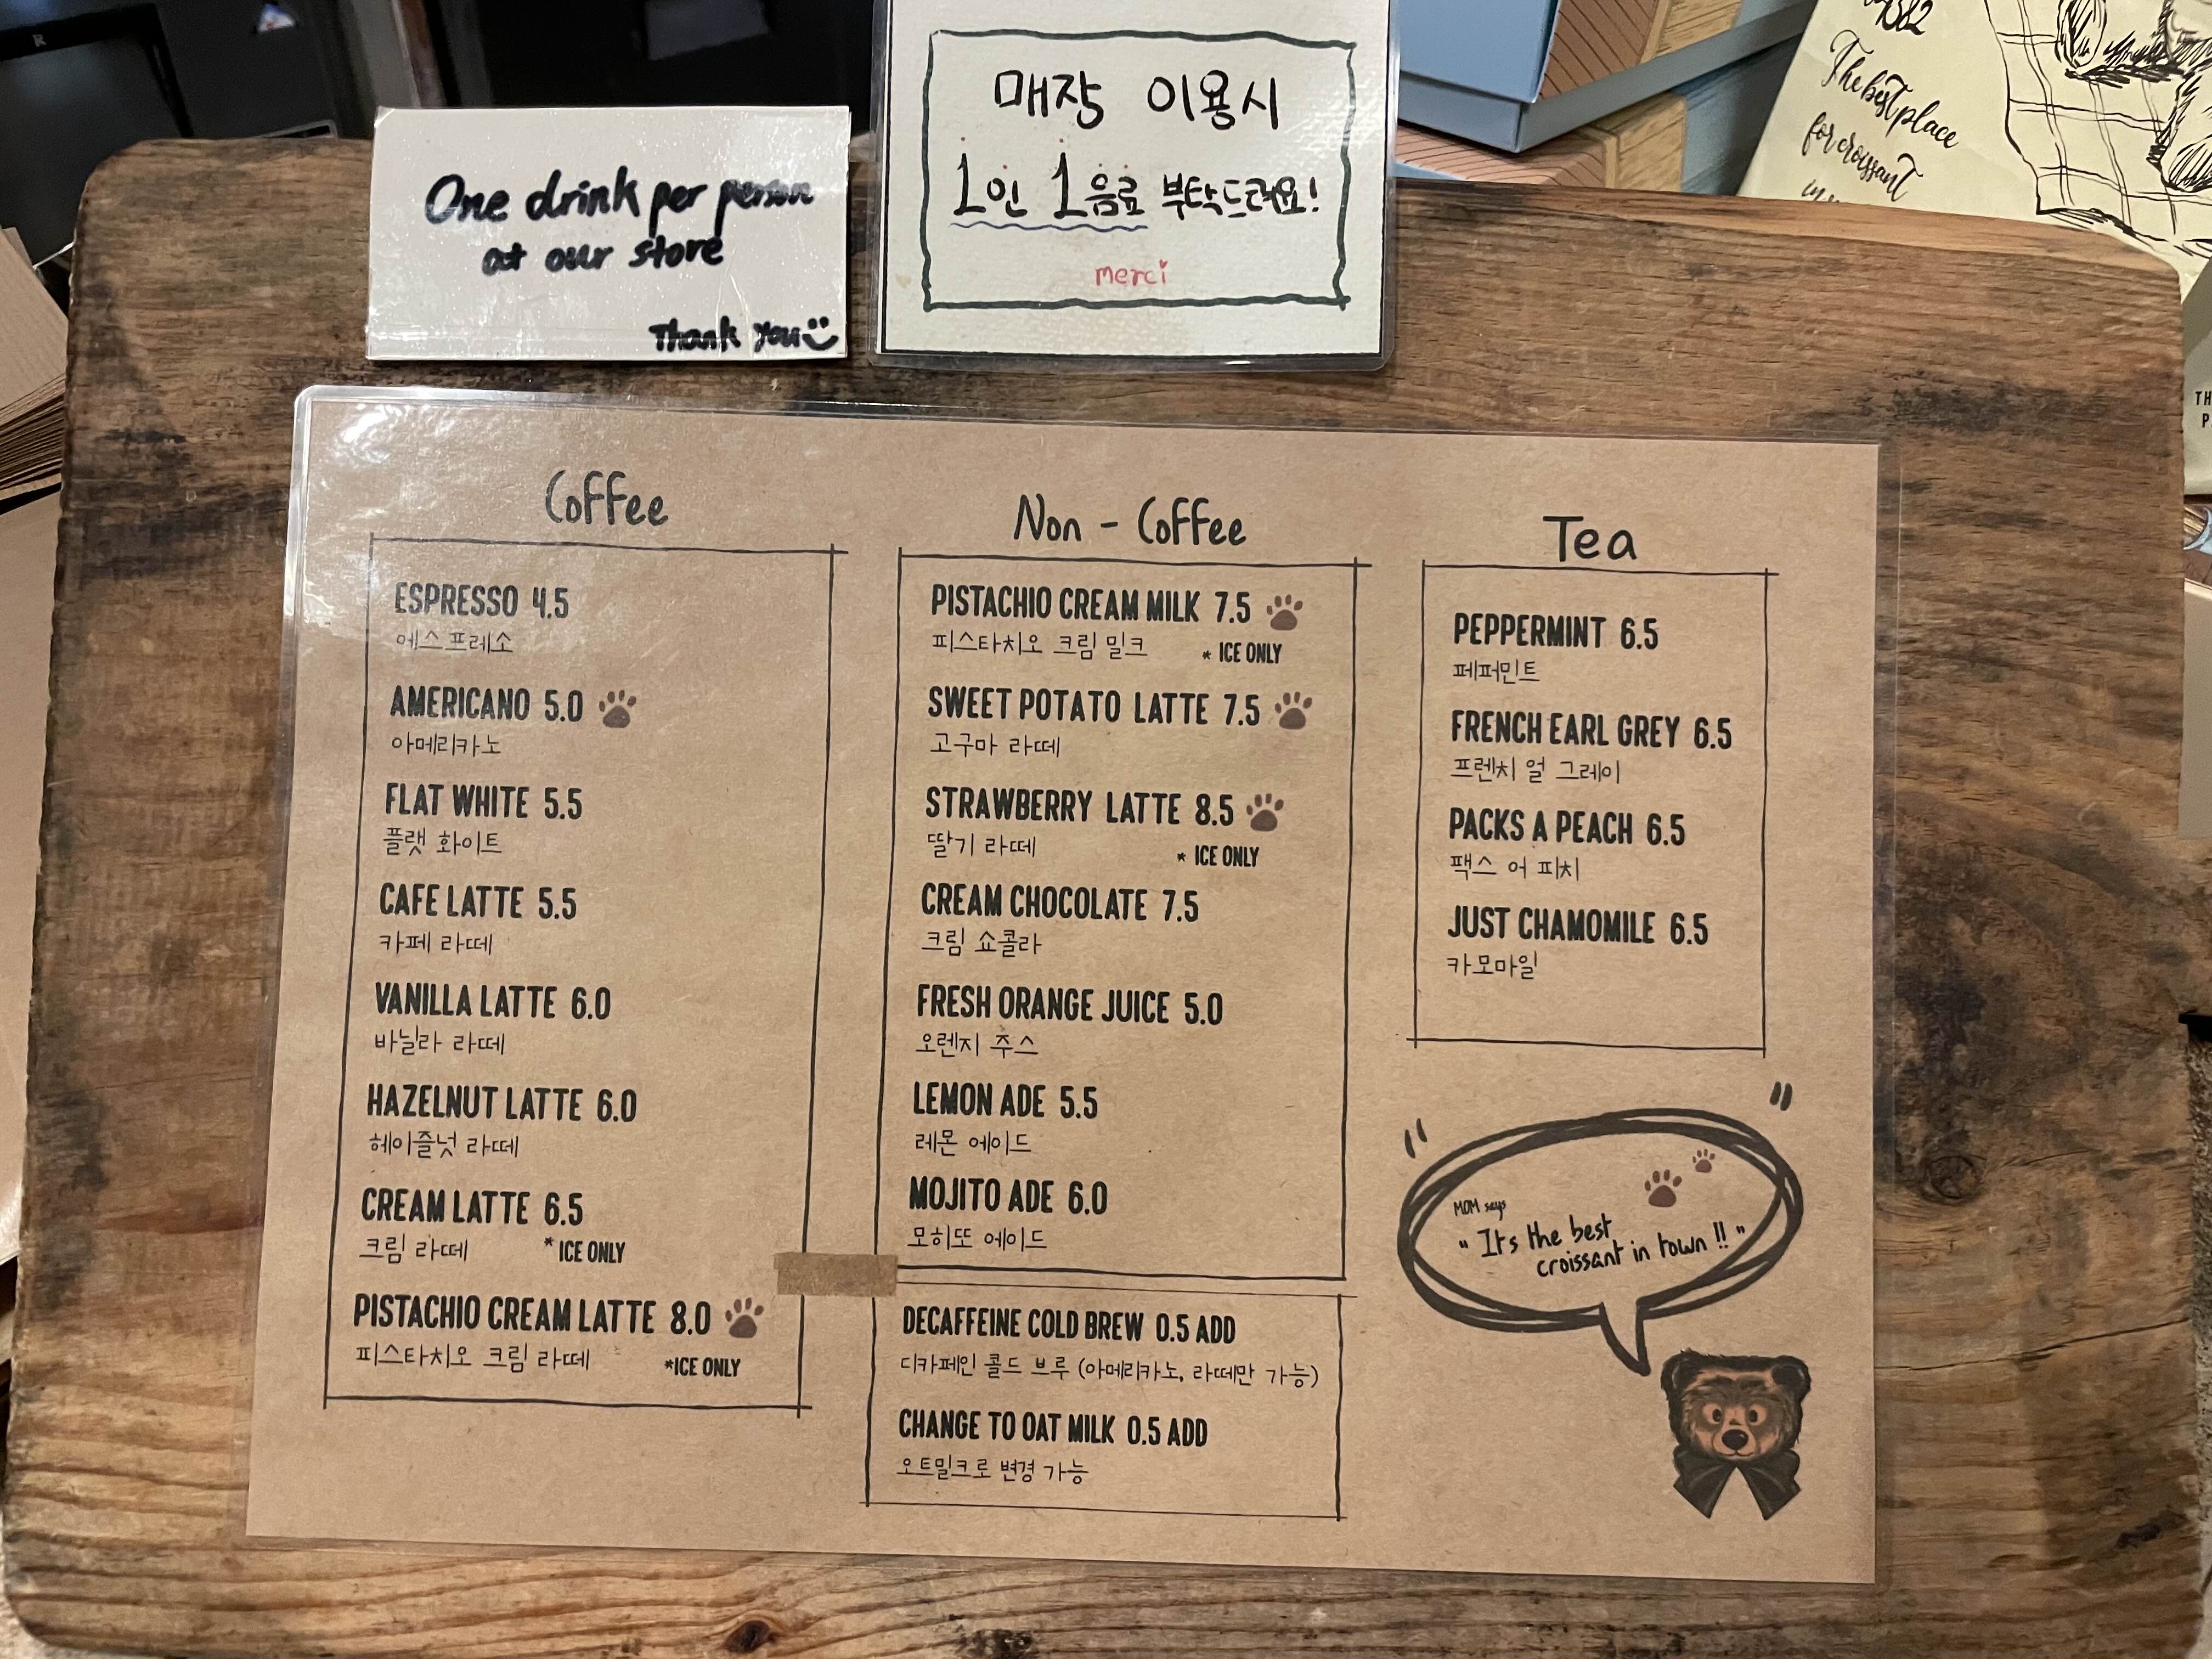 One drink per person
at our store
Thank you
매장 이용시
1인 1음료 부탁드려요!
merci
1362
The best place
for croissant
Coffee
ESPRESSO 4.5
에스프레소
AMERICANO 5.0
아메리카노
FLAT WHITE 5.5
플랫 화이트
CAFE LATTE 5.5
카페 라떼
VANILLA LATTE 6.0
바닐라 라떼
HAZELNUT LATTE 6.0
헤이즐넛 라떼
CREAM LATTE 6.5
크림 라떼 * ICE ONLY
PISTACHIO CREAM LATTE 8.0
피스타치오 크림 라떼 *ICE ONLY
Non - Coffee
PISTACHIO CREAM MILK 7.5
피스타치오 크림 밀크 * ICE ONLY
SWEET POTATO LATTE 7.5
고구마 라떼
STRAWBERRY LATTE 8.5
딸기 라떼 * ICE ONLY
CREAM CHOCOLATE 7.5
크림 쇼콜라
FRESH ORANGE JUICE 5.0
오렌지 주스
LEMON ADE 5.5
레몬 에이드
MOJITO ADE 6.0
모히또 에이드
DECAFFEINE COLD BREW 0.5 ADD
디카페인 콜드 브루 (아메리카노, 라떼만 가능)
CHANGE TO OAT MILK 0.5 ADD
오트밀크로 변경 가능
Tea
PEPPERMINT 6.5
페퍼민트
FRENCH EARL GREY 6.5
프렌치 얼 그레이
PACKS A PEACH 6.5
팩스 어 피치
JUST CHAMOMILE 6.5
카모마일
MOM says
" It's the best
croissant in town !! "